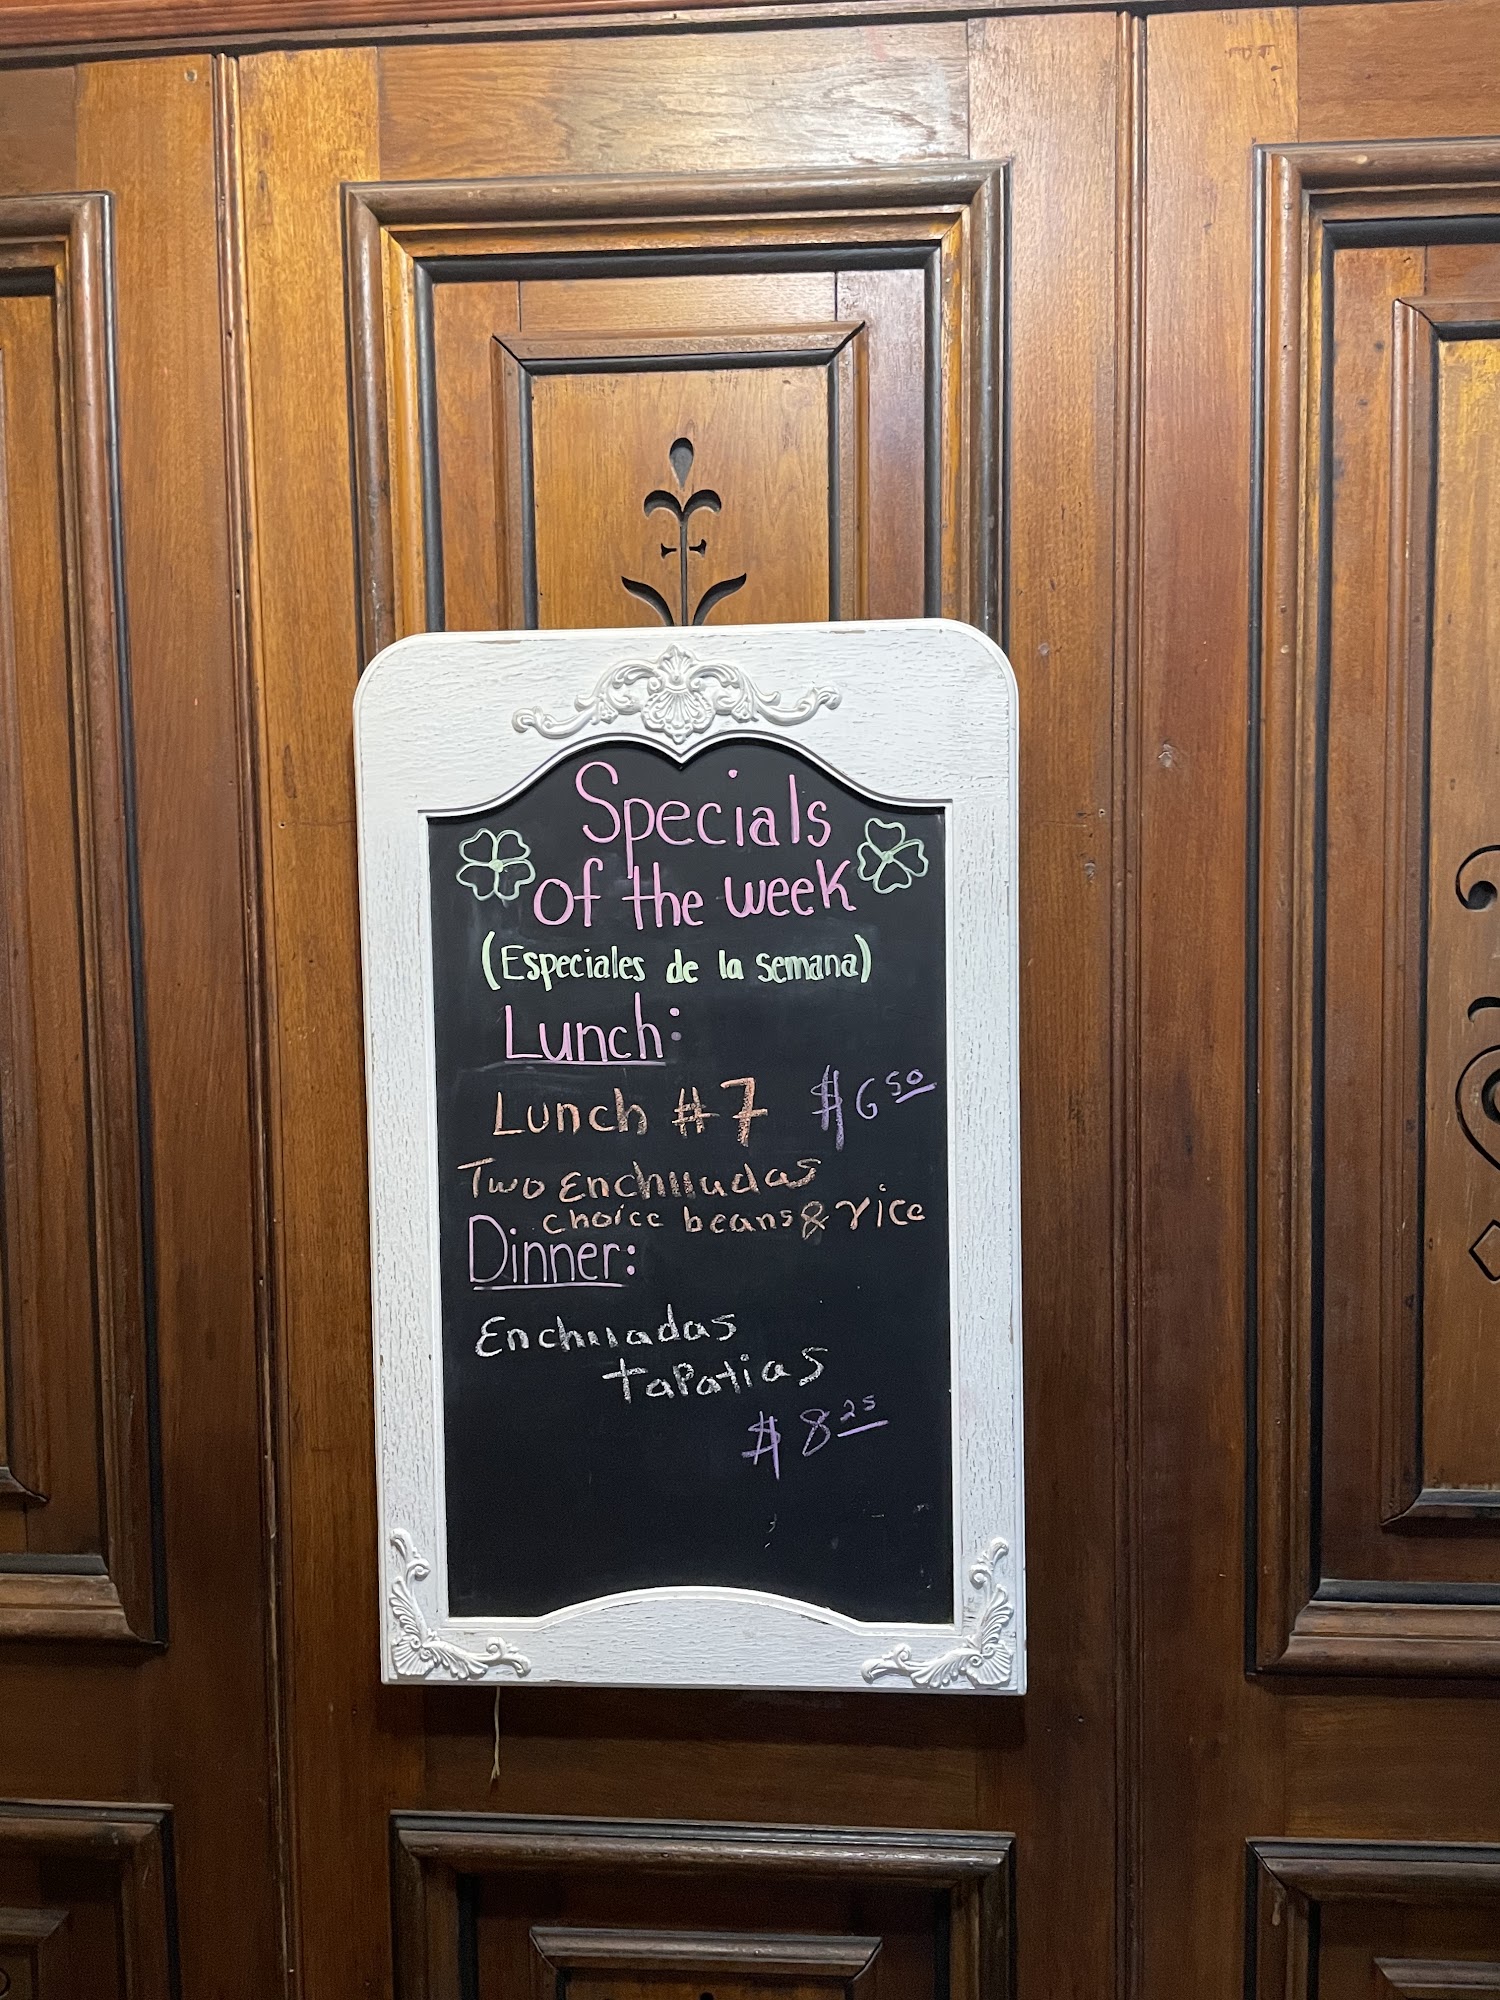 Specials
of the week
(Especiales de la semana)
Lunch:
Lunch #7 $6 50
Two Enchiladas
choice beans & rice
Dinner:
Enchiladas
tapatias
$8 25